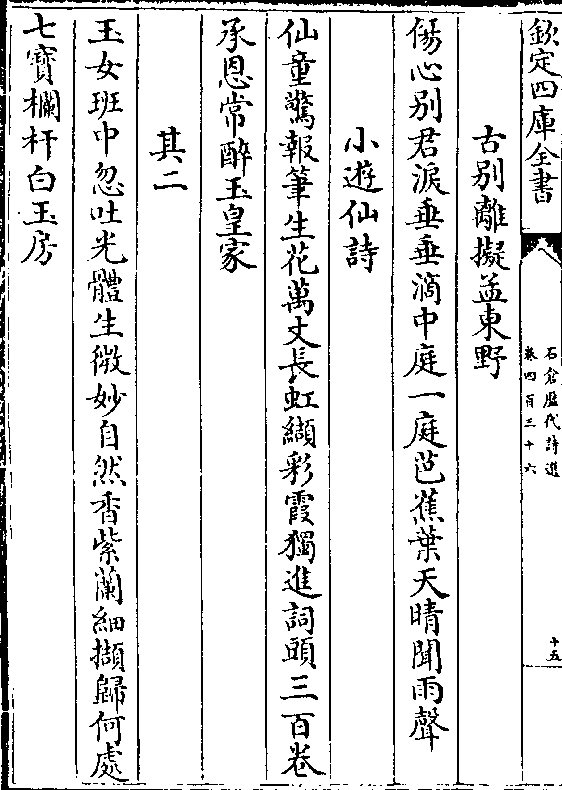 欽定四庫全書
石倉歷代詩選
卷四百三十六
十五
古別離擬孟東野
傷心別君淚垂垂滴中庭一庭芭蕉葉天晴聞雨聲
小遊仙詩
仙童驚報筆生花萬丈長虹纈彩霞獨進詞頭三百卷
承恩常醉玉皇家
其二
玉女班中忽吐光體生微妙自然香紫蘭細擷歸何處
七寶欄杆白玉房